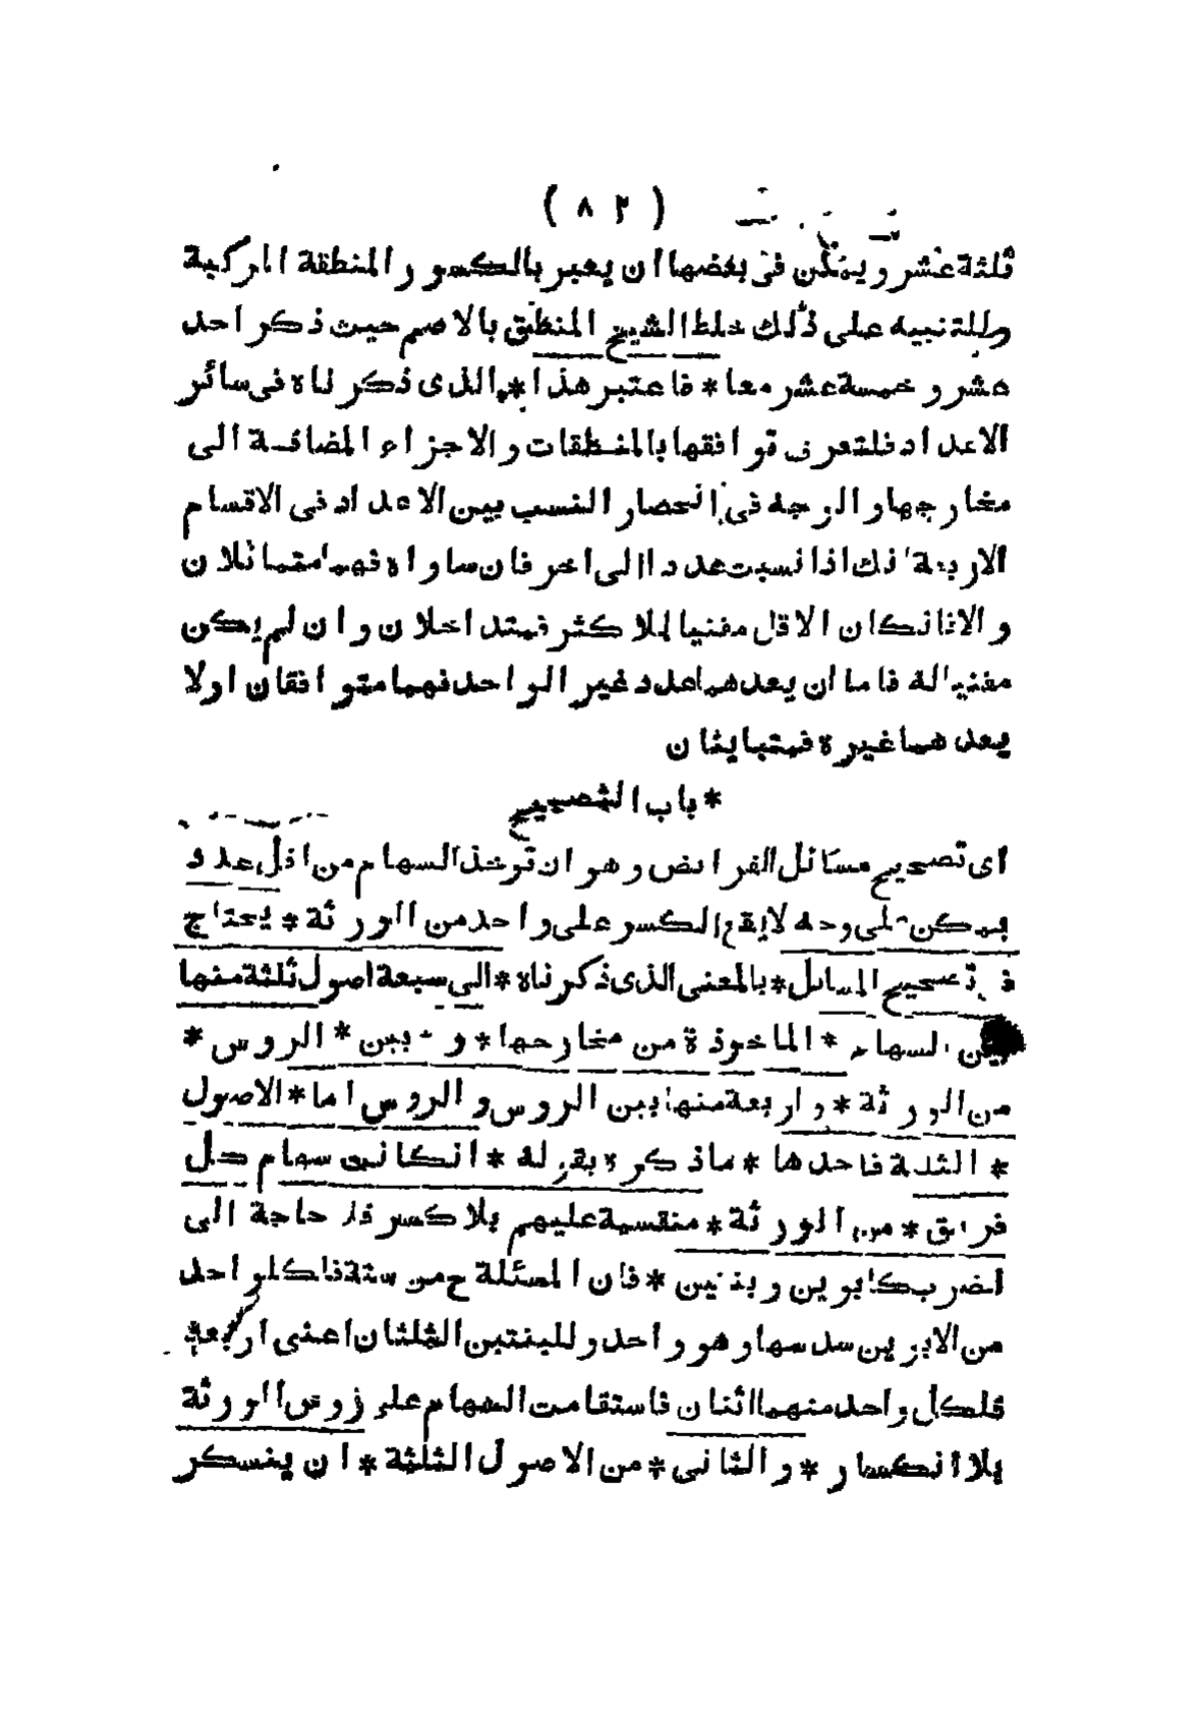 ( ٨٢ )
ثلثة عشر و يمكن في بعضها ان يعبر بالكسور المنطقة المركبة
وللتنبيه على ذلك خلط الشيخ المنطق بالاصم حيث ذكر احد
عشر و خمسة عشر معا * فاعتبر هذا * الذى ذكرناه فى سائر
الاعداد فلتعرف توافقها بالمنطقات والاجزاء المضافة الى
مخارجها والوجه فى انحصار النسب بين الاعداد فى الاقسام
الاربعة انك اذا نسبت عددا الى اخر فان ساواه فهما متماثلان
والا فانكان الاقل مفنيا للاكثر فمتداخلان وان لم يكن
مفنيا له فاما ان يعدهما عدد غير الواحد فهما متوافقان اولا
يعدهما غيره فمتباينان
* باب التصحيح
اى تصحيح مسائل الفرائض وهو ان توخذ السهام من اقل عدد
يمكن على وجه لايقع الكسر على واحد من الورثة * يحتاج
فى تصحيح المسائل * بالمعنى الذى ذكرناه * الى سبعة اصول ثلثة منها
بين السهام * الماخوذة من مخارجها * و بين * الروس *
من الورثة * واربعة منها بين الروس والروس اما * الاصول
* الثلثة فاحدها * ماذكره بقوله * انكانت سهام كل
فريق * من الورثة * منقسمة عليهم بلا كسر فلا حاجة الى
الضرب كابوين وبنتين * فان المسئلة ح من ستة فلكل واحد
من الابوين سدسها وهو واحد وللبنتين الثلثان اعنى اربعة
فلكل واحد منهما اثنان فاستقامت السهام على روس الورثة
بلا انكسار * والثانى * من الاصول الثلثة * ان ينكسر